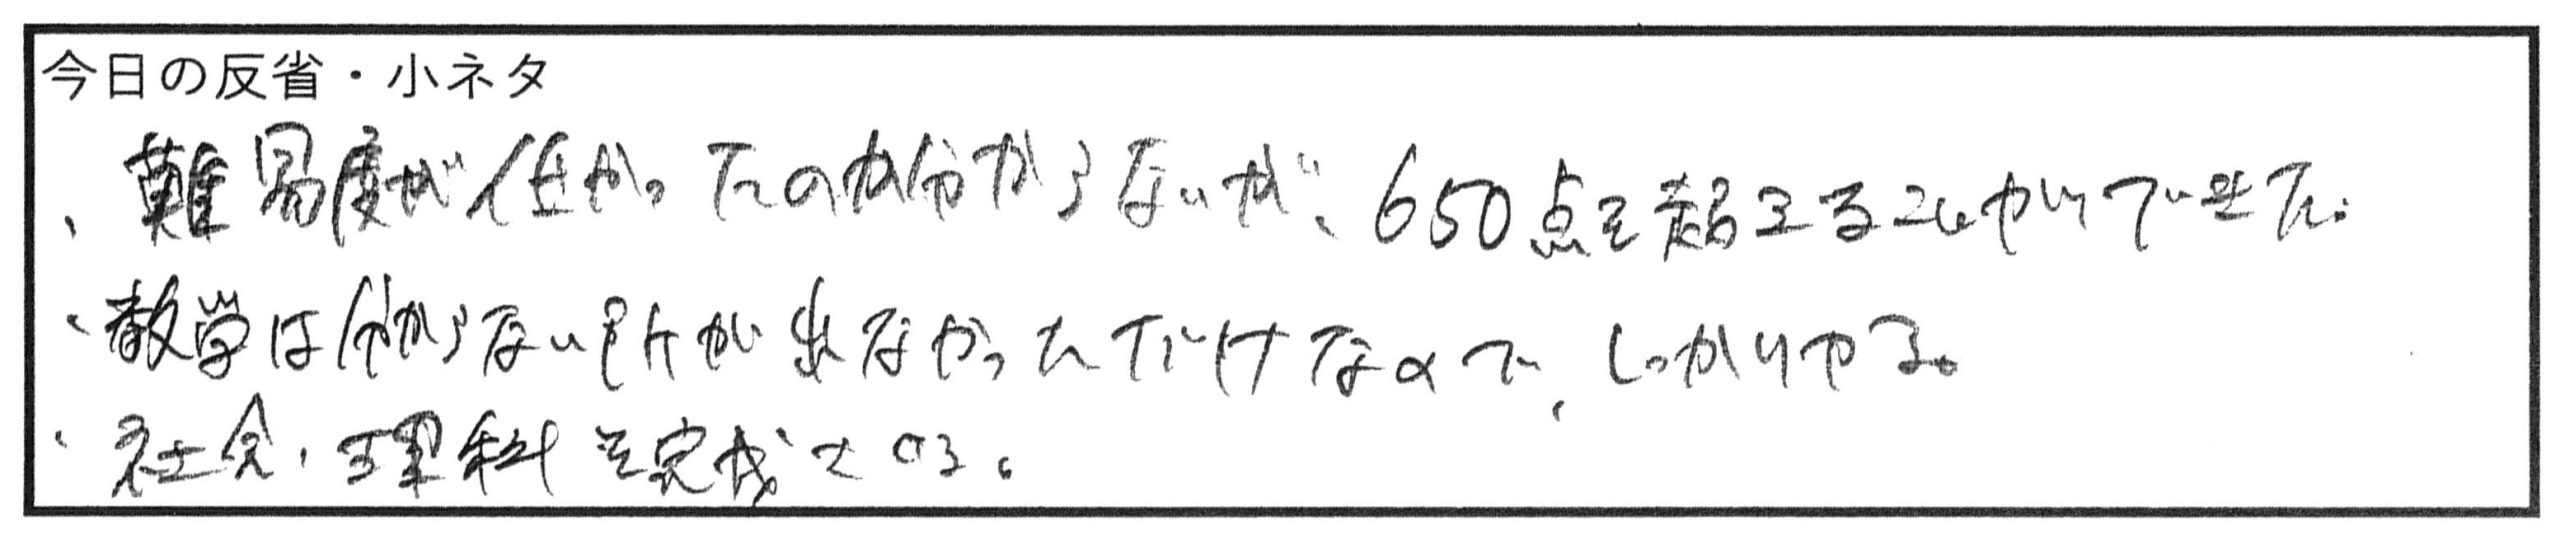 今日の反省・小ネタ
・難易度が低かったのか分からないが、650点を超えることができた。
・数学は分からない所が出なかっただけなので、しっかりやる。
・社会・理科を完成させる。